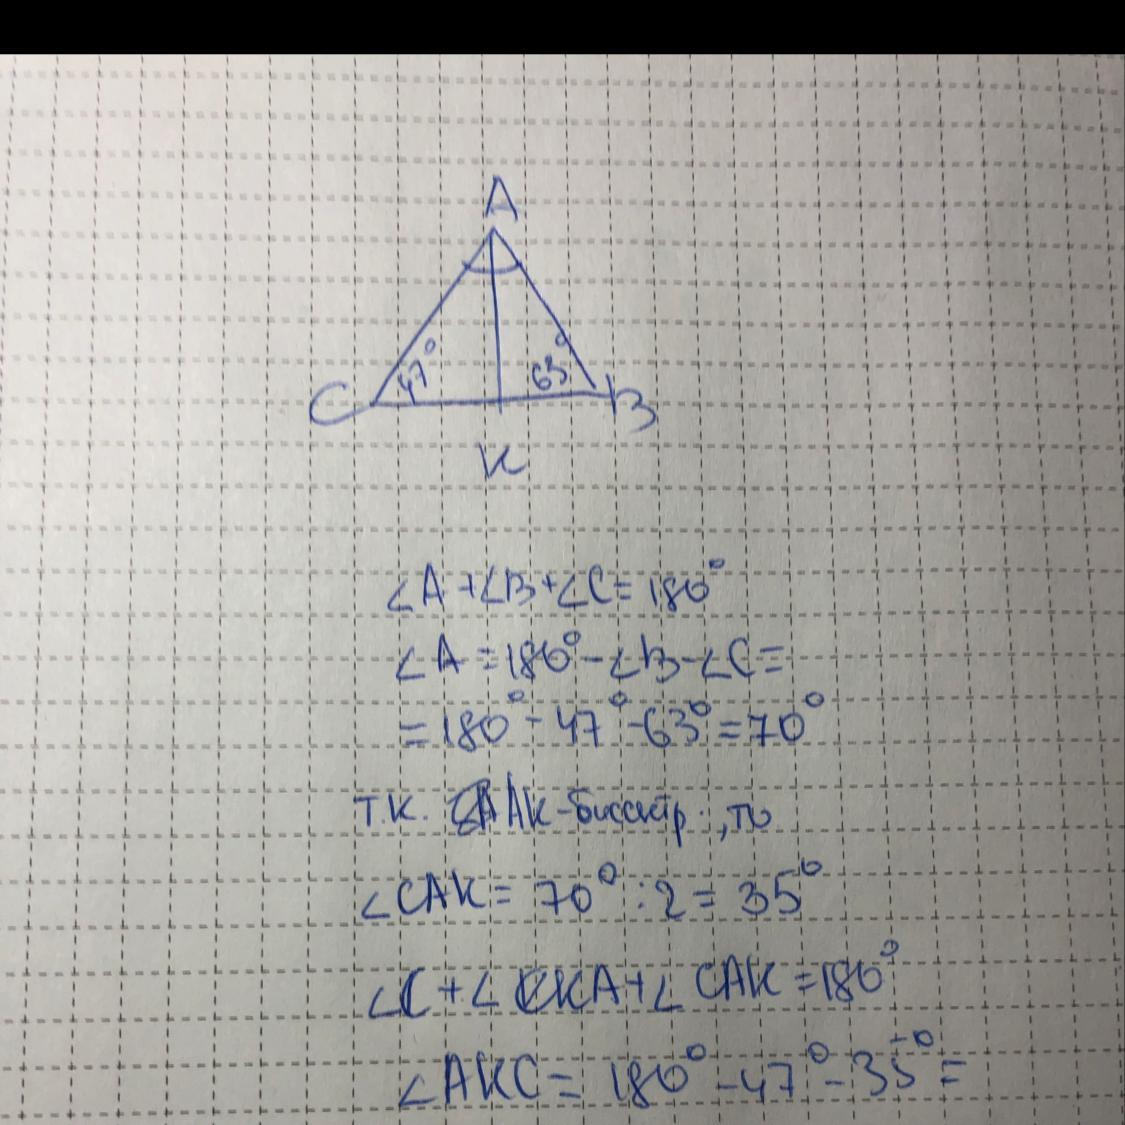 A
47°
63°
C
B
K
∠A+∠B+∠C=180°
∠A=180°-∠B-∠C=
=180°-47°-63°=70°
т.к. AK-биссектр., то
∠CAK=70°:2=35°
∠C+∠CKA+∠CAK=180°
∠AKC=180°-47°-35°=